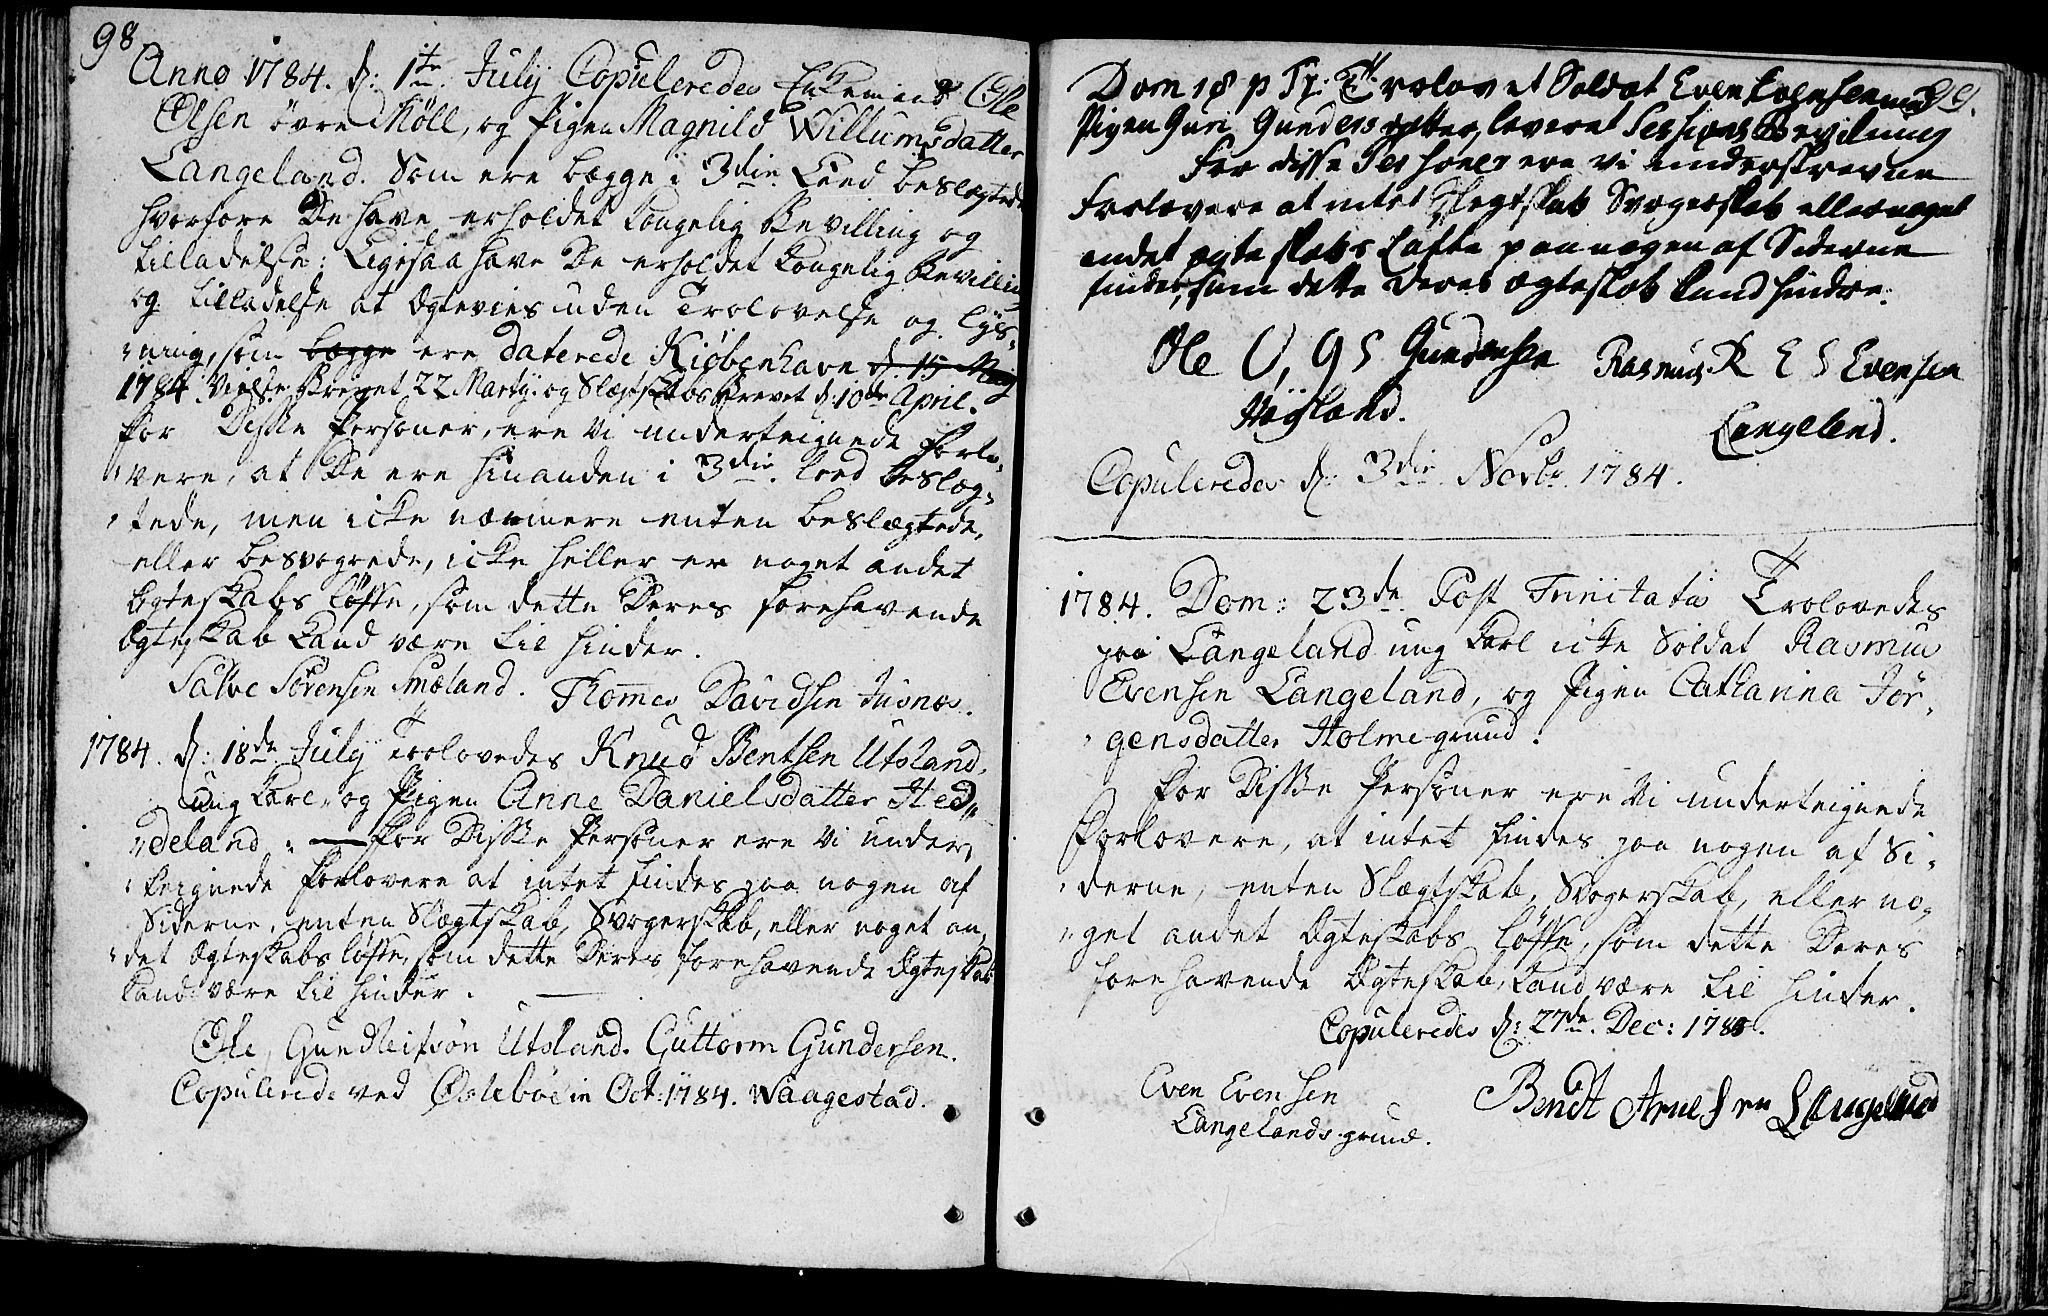 98
Anno 1784. d: 1te July Copuleredes Enkemand Ole
Olsen övre Möll, og Pigen Magnild Willumsdatter
Langeland. Som ere begge i 3die Leed beslægtede
hvorfore De have erholdet kongelig Bevilling og
tilladelse: Ligesaa have De erholdet kongelig Bevilling
og tilladelse at Egtevies uden Trolovelse og lys-
ning, som begge ere daterede Kiøbenhavn d 15 May
1784. Vielse Brevet 22 Martij. og Slægtskabs Brevet d: 10de April.
For Disse Personer, ere Vi underteignede Forlo-
vere, at De ere hinanden i 3die leed beslæg-
tede, men icke nærmere enten beslægtede,
eller besvogrede, icke heller er noget andet
Egteskabs løfte, som dette Deres forehavende
Egteskab kand være til hinder.
Salve Sörensen Smæland. Thomes Davidsen Jusnes.
1784. d: 18de July trolovedes Knud Bentsen Utsland,
ung karl, og Pigen Anne Danielsdatter Hed-
deland. — For Disse Personer ere Vi under-
teignede Forlovere at intet findes paa nogen af
Siderne, enten Slægtskab, Svogerskab, eller noget an-
det Egteskabs løfte, som dette Deres forehavende Egteskab
kand være til hinder. —
Ole Gundleifsön Utsland. Guttorm Gundersen.
Copulerede ved Öslebøe in Oct: 1784. Waagestad.
99.
Dom 18 p Tr: Trolovet Soldat Even Evensen med
Pigen Guri Gundersdatter, leveret Sessions Bevilning
For disse Personer ere vi underskrevne
Forlovere at intet Slegtskab Svogerskab eller noget
andet egteskabs Løfte paa nogen af Siderne
findes, som dette deres Egteskab kand hindre.
Ole O, G S Gundersen Rasmus R E S Evensen
Høyland. Langeland.
Copuleredes d: 3die Novbr 1784.
1784. Dom: 23de Post Trinitatis Trolovedes
paa Langeland ung karl icke Soldat Rasmus
Evensen Langeland, og Pigen Catharina Jör-
gensdatter Holmegrund.
For Disse Personer ere Vi underteignede
Forlovere, at intet findes paa nogen af Si-
derne, enten Slægtskab, Svogerskab, eller no-
get andet Egteskabs løfte, som dette Deres
forehavende Egteskab, kand være til hinder.
Copuleredes d: 27de Dec: 178.
Even Evensen Bendt Arnesen Langeland
Langelandsgrund.